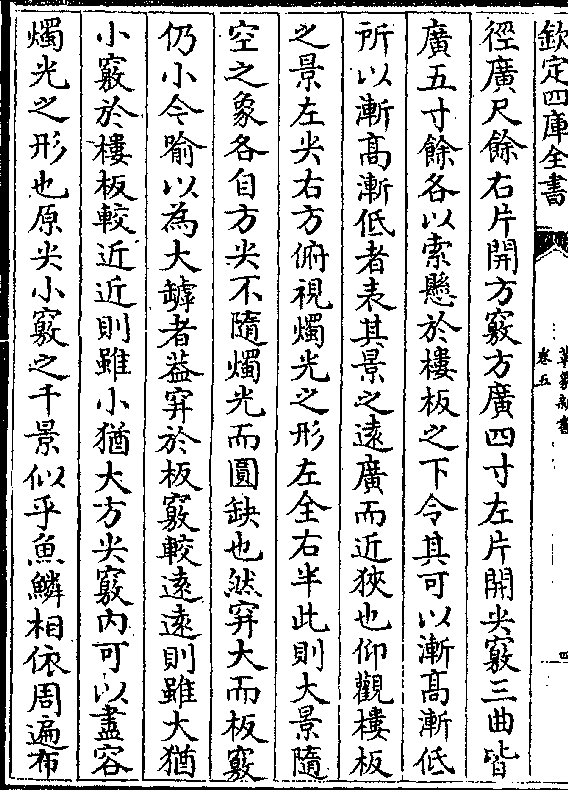 欽定四庫全書
卷五
徑廣尺餘右片開方竅方廣四寸左片開尖竅三曲皆
廣五寸餘各以索懸於樓板之下令其可以漸高漸低
所以漸髙漸低者表其景之遠廣而近狹也仰觀樓板
之景左尖右方俯視燭光之形左全右半此則大景隨
空之象各自方尖不隨燭光而圓缺也然穽大而板竅
仍小今喻以為大罅者葢穽於板竅較逺逺則雖大猶
小竅於樓板較近近則雖小猶大方尖竅内可以盡容
燭光之形也原尖小竅之千景似乎魚鱗相依周遍布